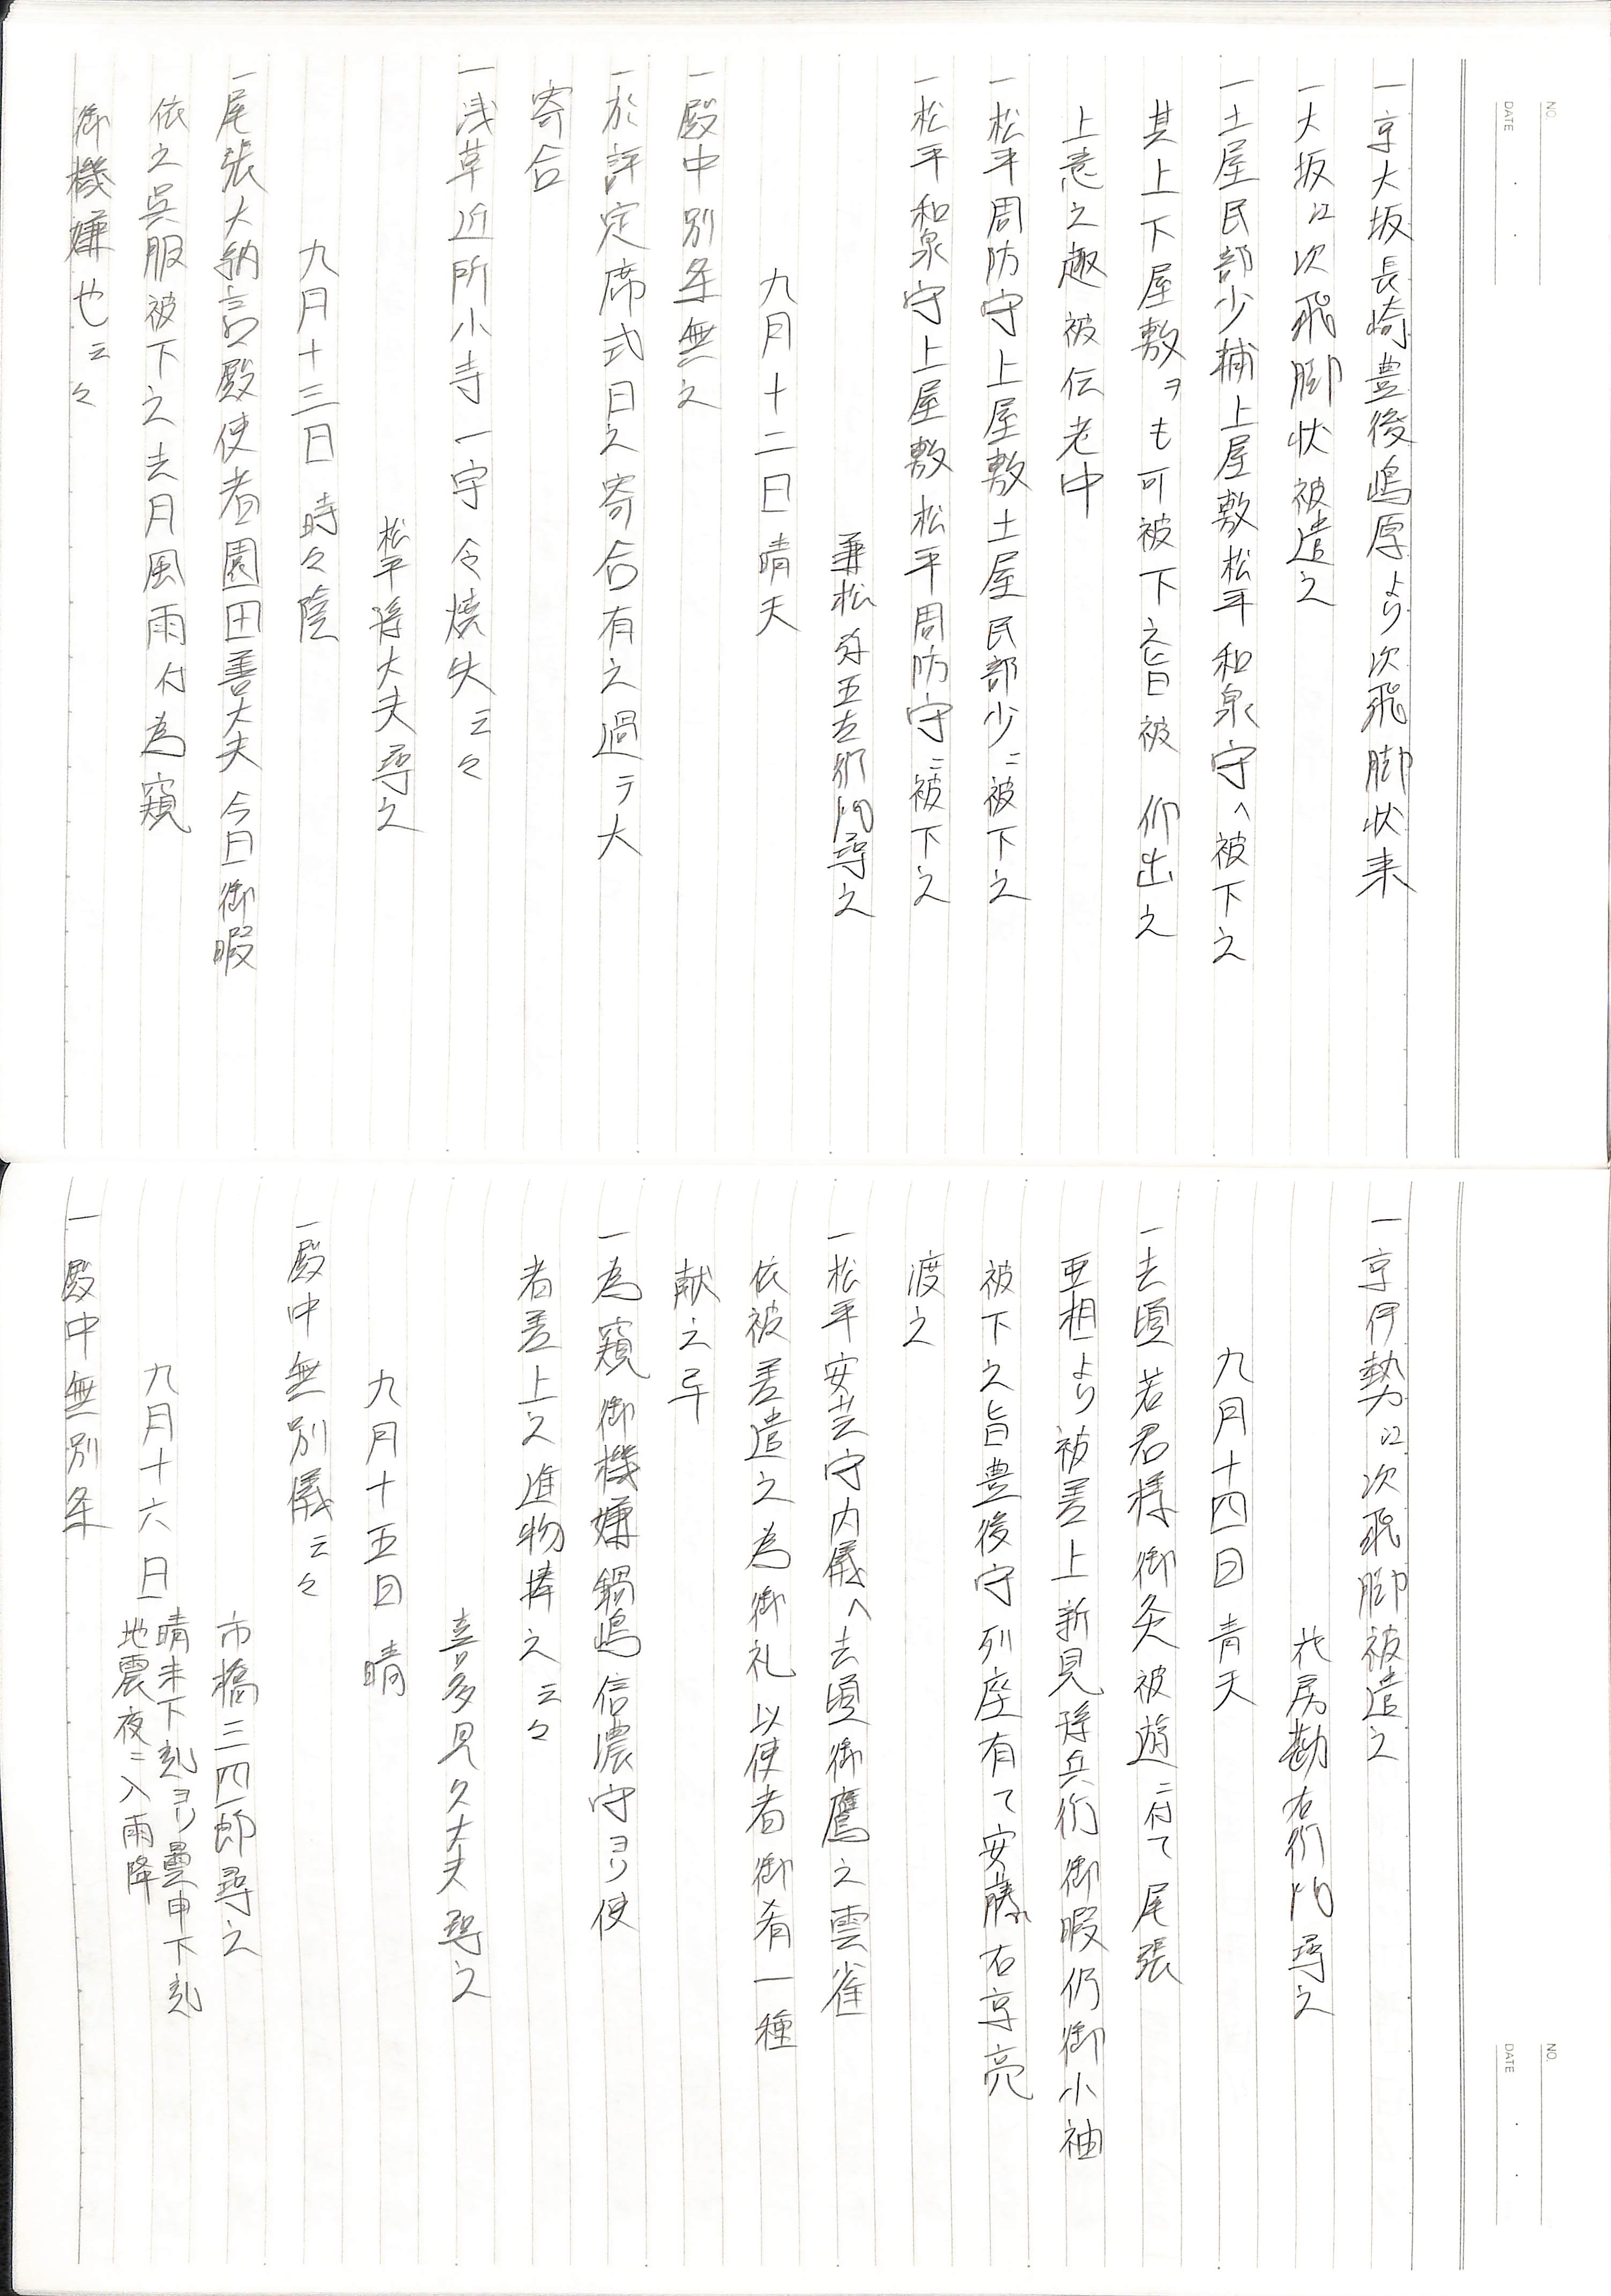 NO.
DATE
一京大坂長崎豊後嶋原より次飛脚状来
一大坂江次飛脚状被遣之
一土屋民部少輔上屋敷松平和泉守へ被下之
其上下屋敷ヲも可被下之旨被 仰出之
上意之趣被伝老中
一松平周防守上屋敷土屋民部少ニ被下之
一松平和泉守上屋敷松平周防守ニ被下之
兼松弥五左衛門尋之
九月十二日 晴天
一殿中別条無之
一於評定席式日之寄合有之過テ大
寄合
一浅草近所小寺一宇令焼失云々
松平隼大夫尋之
九月十三日 時々陰
一尾張大納言殿使者園田善大夫今日御暇
依之呉服被下之去月風雨付為窺
御機嫌也云々
NO.
DATE
一京伊勢江次飛脚被遣之
花房勘右衛門尋之
九月十四日 青天
一去頃若君様御灸被遊ニ付て尾張
亜相より被差上新見孫兵衛御暇仍御小袖
被下之旨豊後守列座有て安藤右京亮
渡之
一松平安芸守内儀へ去頃御鷹之雲雀
依被差遣之為御礼以使者御肴一種
献之
一為窺御機嫌鍋嶋信濃守ヨリ使
者差上之進物捧之云々
喜多見久大夫尋之
九月十五日 晴
一殿中無別儀云々
市橋三四郎尋之
九月十六日 晴未下刻ヨリ曇申下刻
地震夜ニ入雨降
一殿中無別条